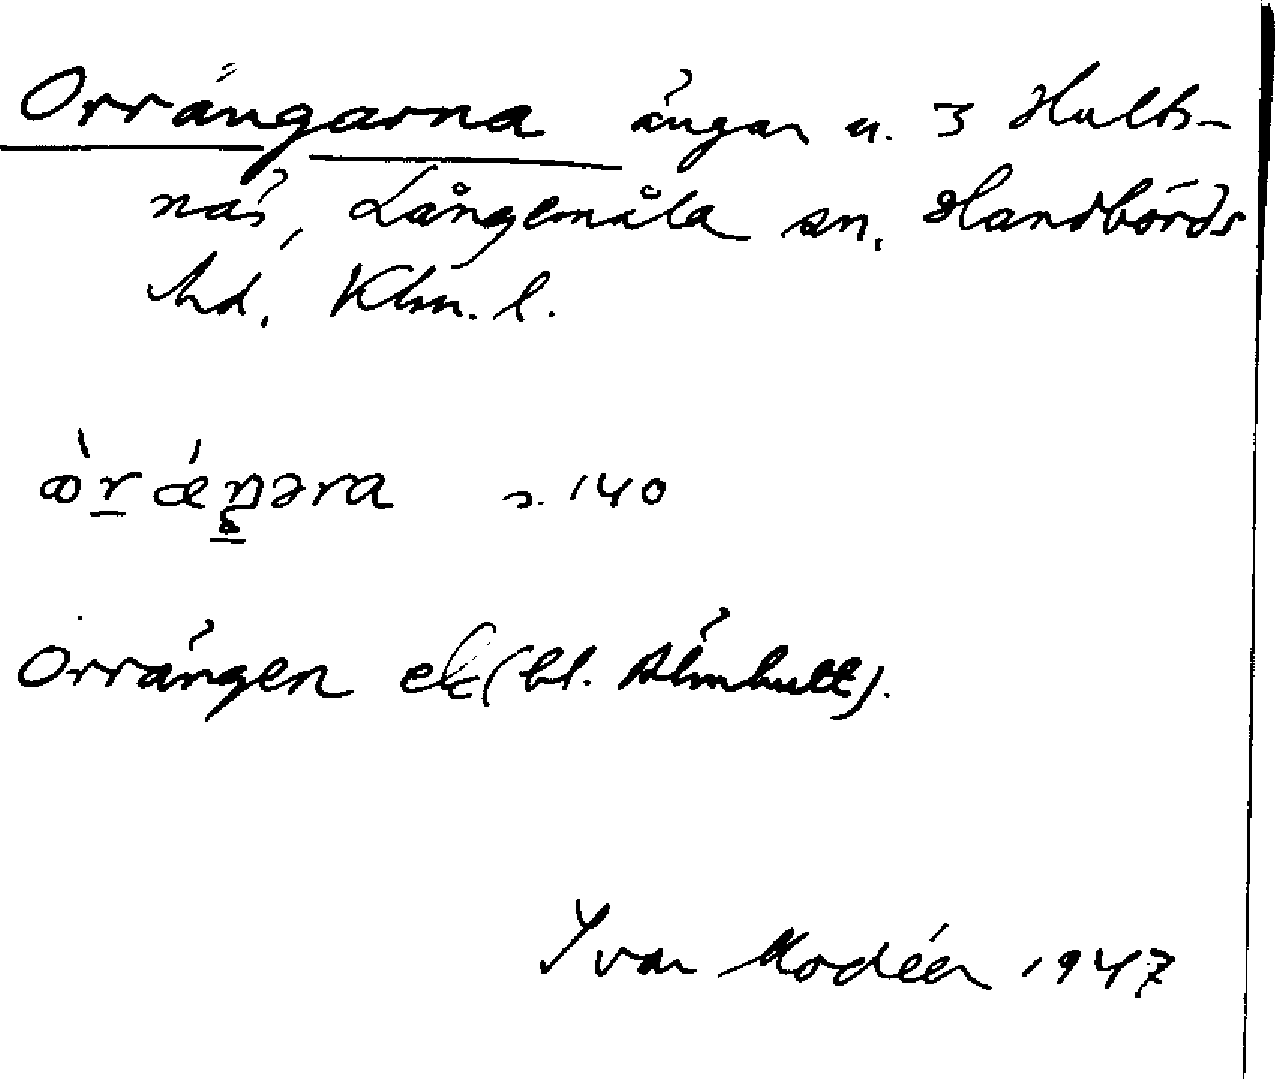 Orrängarna ängar u. 3 Hults-
näs, Långemåla sn, Handbörds
hd. Klm. l.
s. 140
Orrängen ek (bl. Älmhult).
Yvar Modéer 1947